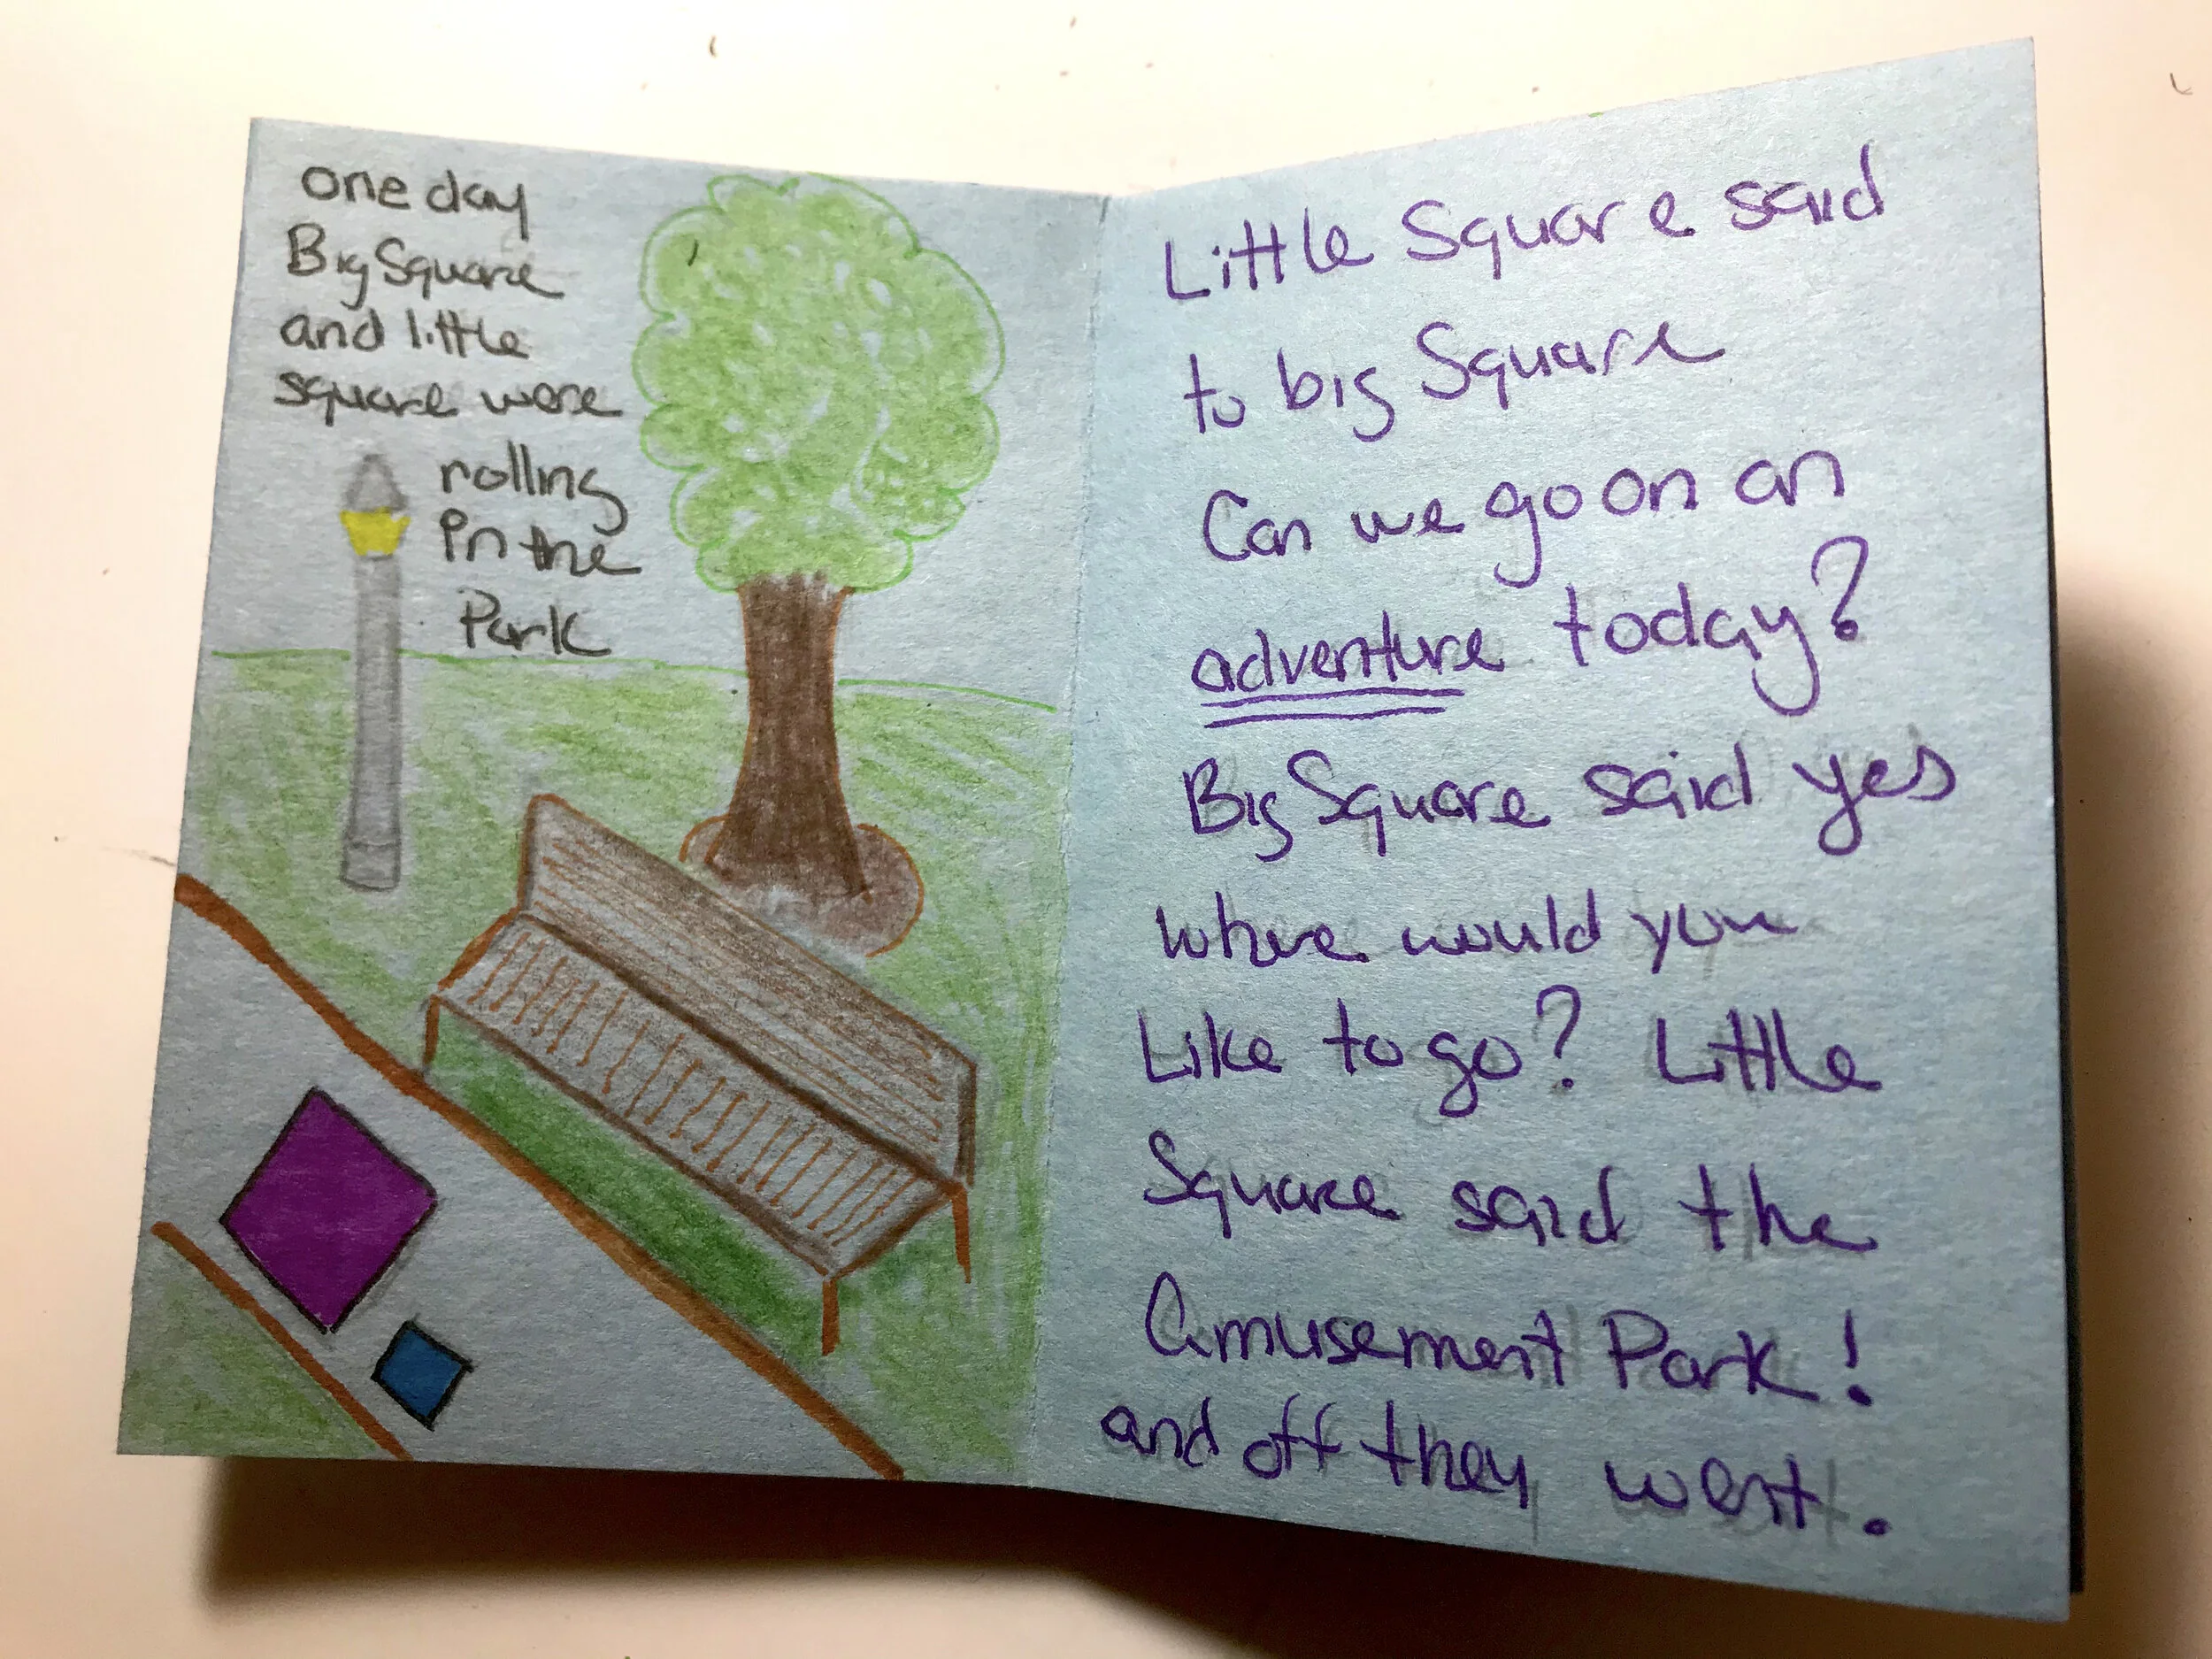 one day
Big Square
and little
square were
rolling
in the
Park
Little Square said
to big Square
Can we go on an
adventure today?
Big Square said yes
where would you
Like to go? Little
Square said the
Amusement Park!
and off they went.